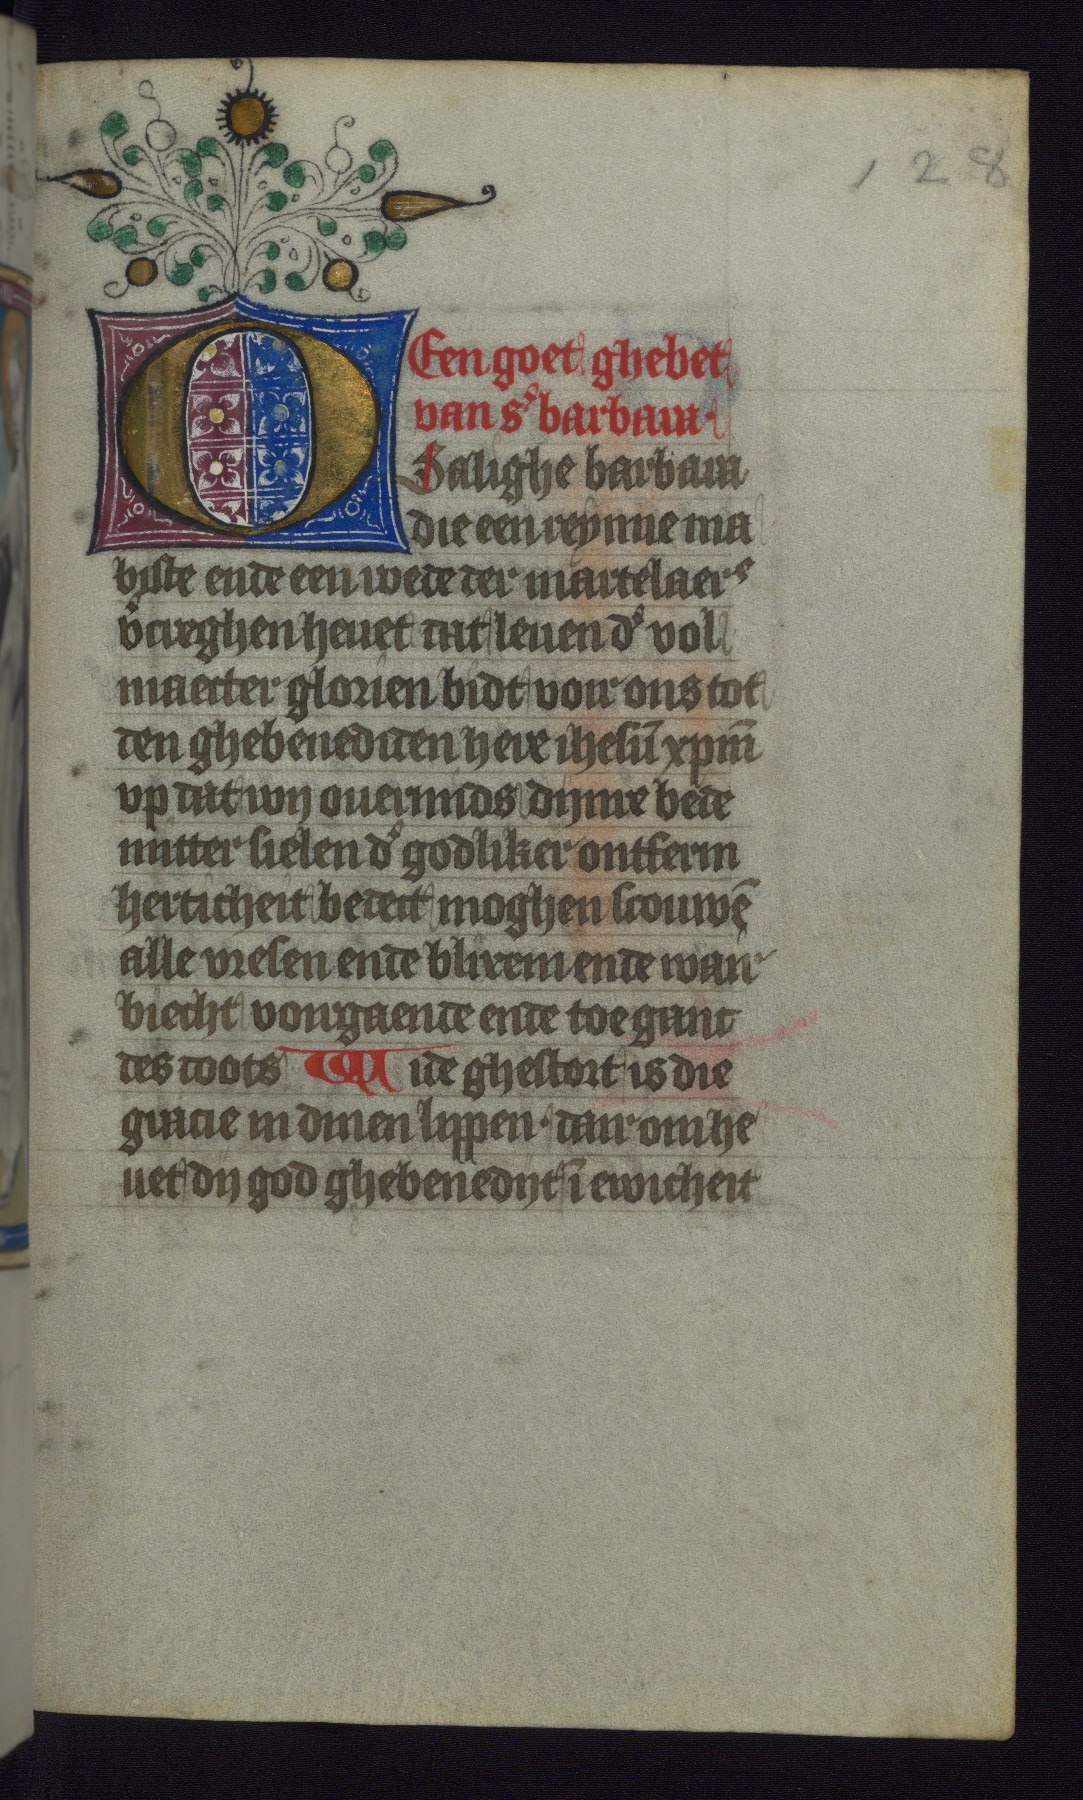 128
Een goet ghebet
van sͤ barbara·
O Salighe barbara
die een reynne ma
histe ende een wede der martelaerˢ
v̾creghen hevet dat leven d̾ vol
maecter glorien bidt voir ons tot
den ghebenediten here ihesū xpm̄
up dat wij overmids dijnre bede
mitter sielen d̾ godliker ontferm
herticheit bedect moghen scouwē
alle vresen ende blixem ende wan
biecht voirgaende ende toegant
des doots W ide ghestort is die
gracie in dinen lippen· dair om he
vet dij god ghebenedijt ī ewicheit